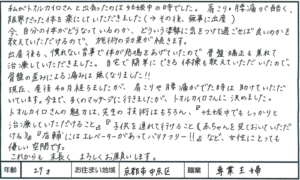 私がトオルカイロさんと出会ったのは妊娠中の時でした。肩こり・腰痛が酷く、
限界だった体を楽にしていただきました(→その後、無事に出産)
今、自分の体がどうなっているのか、どういう姿勢に気をつけて過ごせば良いのかを
教えていただけるので、施術の効果が続きます。
出産後も、慣れない育児で体が悲鳴をあげていたので骨盤矯正も兼ねて
治療していただきました。自宅で簡単にできる体操も教えていただいたので、
骨盤の歪みによる痛みは無くなりました!!
現在、産後4カ月経ちましたが、肩こりや腰痛がでた時は助けていただ
いています。今まで、多くのマッサージに行きましたが、トオルカイロさんに決めました。
トオルカイロさんの魅力は、先生の技術はもちろん、『妊娠中でもしっかりと
治療していただけること』『子供を連れて行けること(赤ちゃんを見ておいていただ
ける)』『店舗にはエレベーターがあってバリアフリー!!』など、女性にとっても
優しい空間です。
これからも末長くよろしくお願いします。
年齢 27才 お住まい地域 京都市中京区 職業 専業主婦